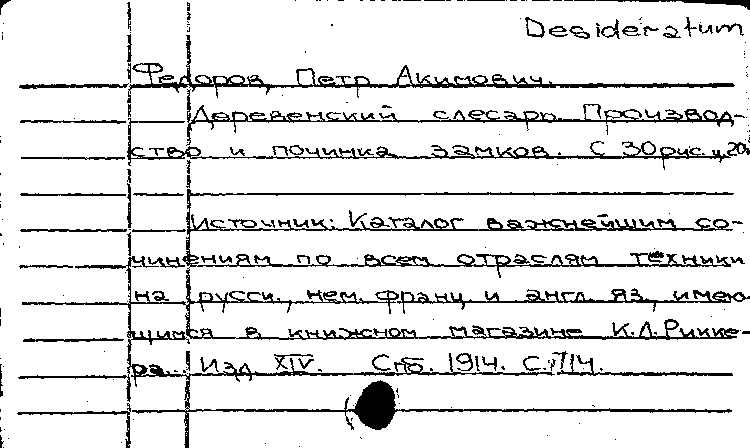 Desideratum
Федоров, Петр Акимович.
Деревенский слесарь. Производ-
ство и починка замков. С 30 рис. ц. 20
Источник: Каталог важнейшим со-
чинениям по всем отраслям техники
на русск., нем. франц. и англ. яз., имею-
щимся в книжном магазине К.Л.Рикке-
ра. Изд. XIV. Спб. 1914. С. 114.